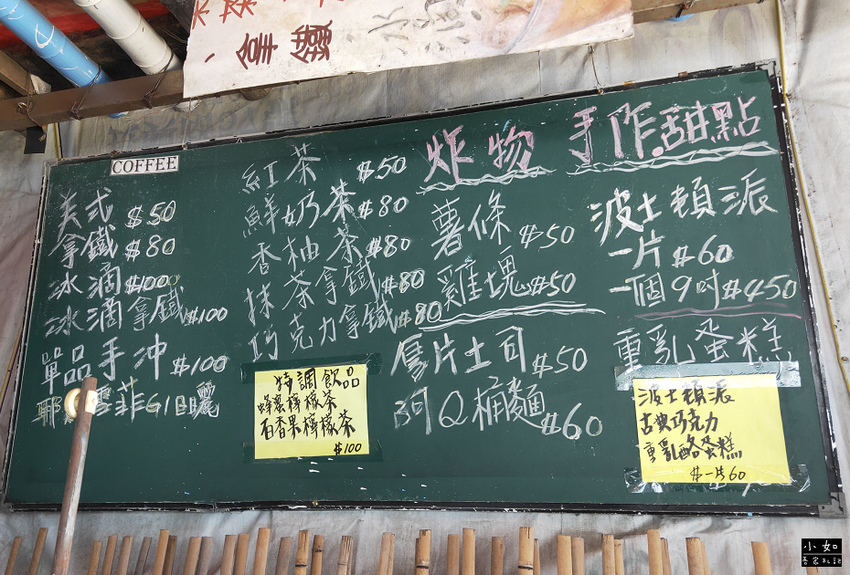 拿鐵
COFFEE
美式 $50
拿鐵 $80
冰滴 $100
冰滴拿鐵 $100
單品手沖 $100
耶 雪菲G1日曬
紅茶 $50
鮮奶茶 $80
香柚茶 $80
抹茶拿鐵 $80
巧克力拿鐵 $80
特調飲品
蜂蜜檸檬茶
百香果檸檬茶
$100
炸物
薯條 $50
雞塊 $50
厚片土司 $50
阿Q桶麵 $60
手作甜點
波士頓派
一片 $60
一個9吋 $450
重乳蛋糕
波士頓派
古典巧克力
重乳酪蛋糕
$一片60
小如
吾家札記